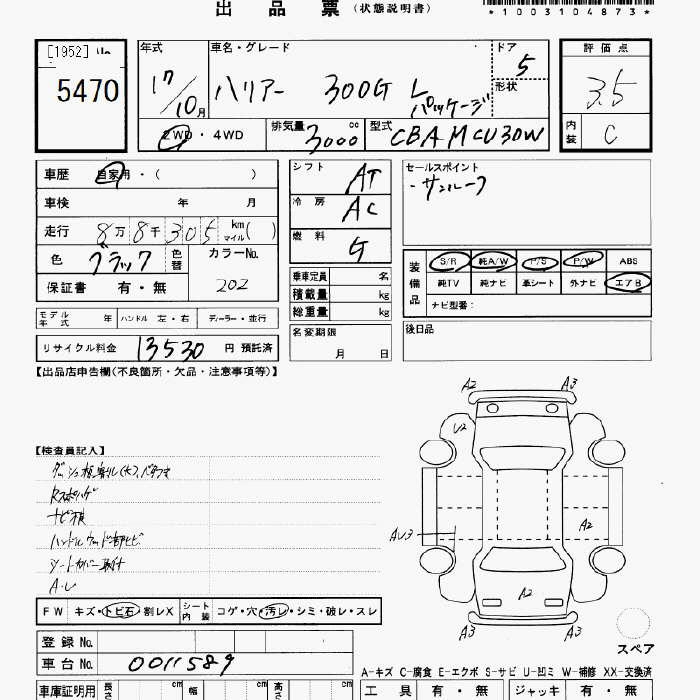 出品票 (状態説明書)
*1003104873*
[1952]
5470
年式 17/10月
車名・グレード ハリアー 300G L パッケージ
ドア 5
形状
評価点 3.5
内装 C
2WD・4WD
排気量 3000 cc
型式 CBA MCU30W
車歴 自家用・( )
車検 年 月
走行 8万8千305 km マイル( )
色 ブラック 色替
カラーNo. 202
保証書 有・無
シフト AT
冷房 AC
燃料 G
乗車定員 名
積載量 kg
総重量 kg
名変期限 月 日
セールスポイント
・サンルーフ
装備品 S/R 純A/W P/S P/W ABS
純TV 純ナビ 革シート 外ナビ エアB
ナビ型番:
後日品
モデル年式 年 ハンドル 左・右 ディーラー・並行
リサイクル料金 13530 円 預託済
【出品店申告欄(不良箇所・欠品・注意事項等)】
【検査員記入】
ナビ
ハンドル
シートカバー
FW キズ・トビ石・割レX シート内装 コゲ・穴・汚レ・シミ・破レ・スレ
登録No.
車台No. 0011589
車庫証明用 長さ cm 幅 cm 高さ cm
A2 A3
U2
AU3
A2
A2
A3 A3
スペア
A-キズ C-腐食 E-エクボ S-サビ U-凹ミ W-補修 XX-交換済
工具 有・無 ジャッキ 有・無